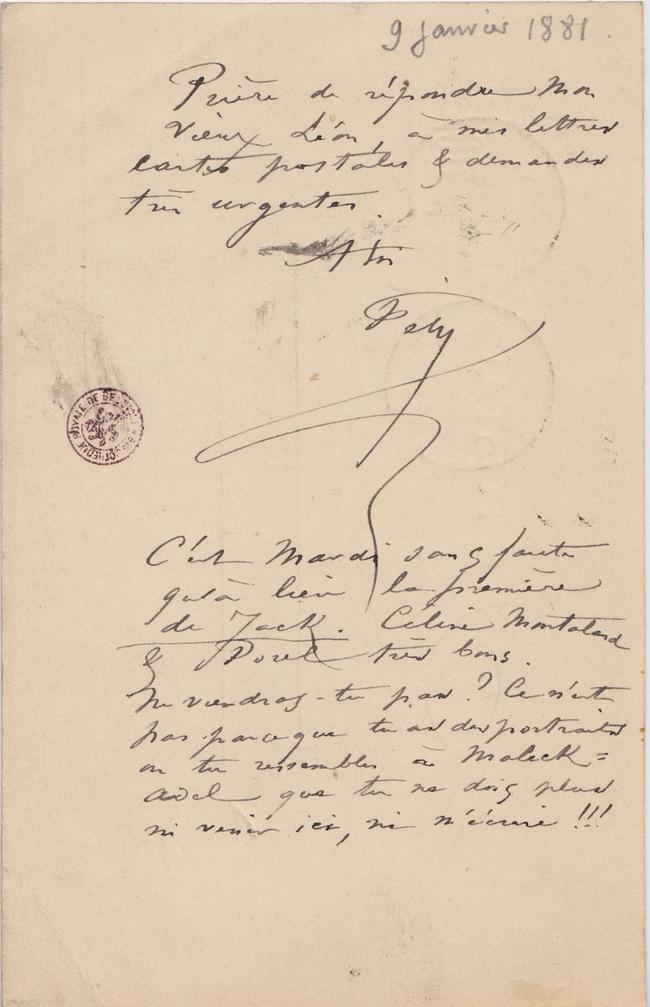 9 janvier 1881.
Prière de répondre Mon
Vieux Léon, à mes lettres
cartes postales & demandes
très urgentes.
A toi
Fély
BIBLIOTHEQUE ROYALE DE BELGIQUE
C'est Mardi sans faute
qu'à lieu la première
de Jack. Céline Montaland
& Porel très bons.
Ne viendras-tu pas ? Ce n'est
pas parceque tu as des portraits
ou tu ressembles à Maleck=
adel que tu ne dois plus
ni venir ici, ni m'écrire !!!